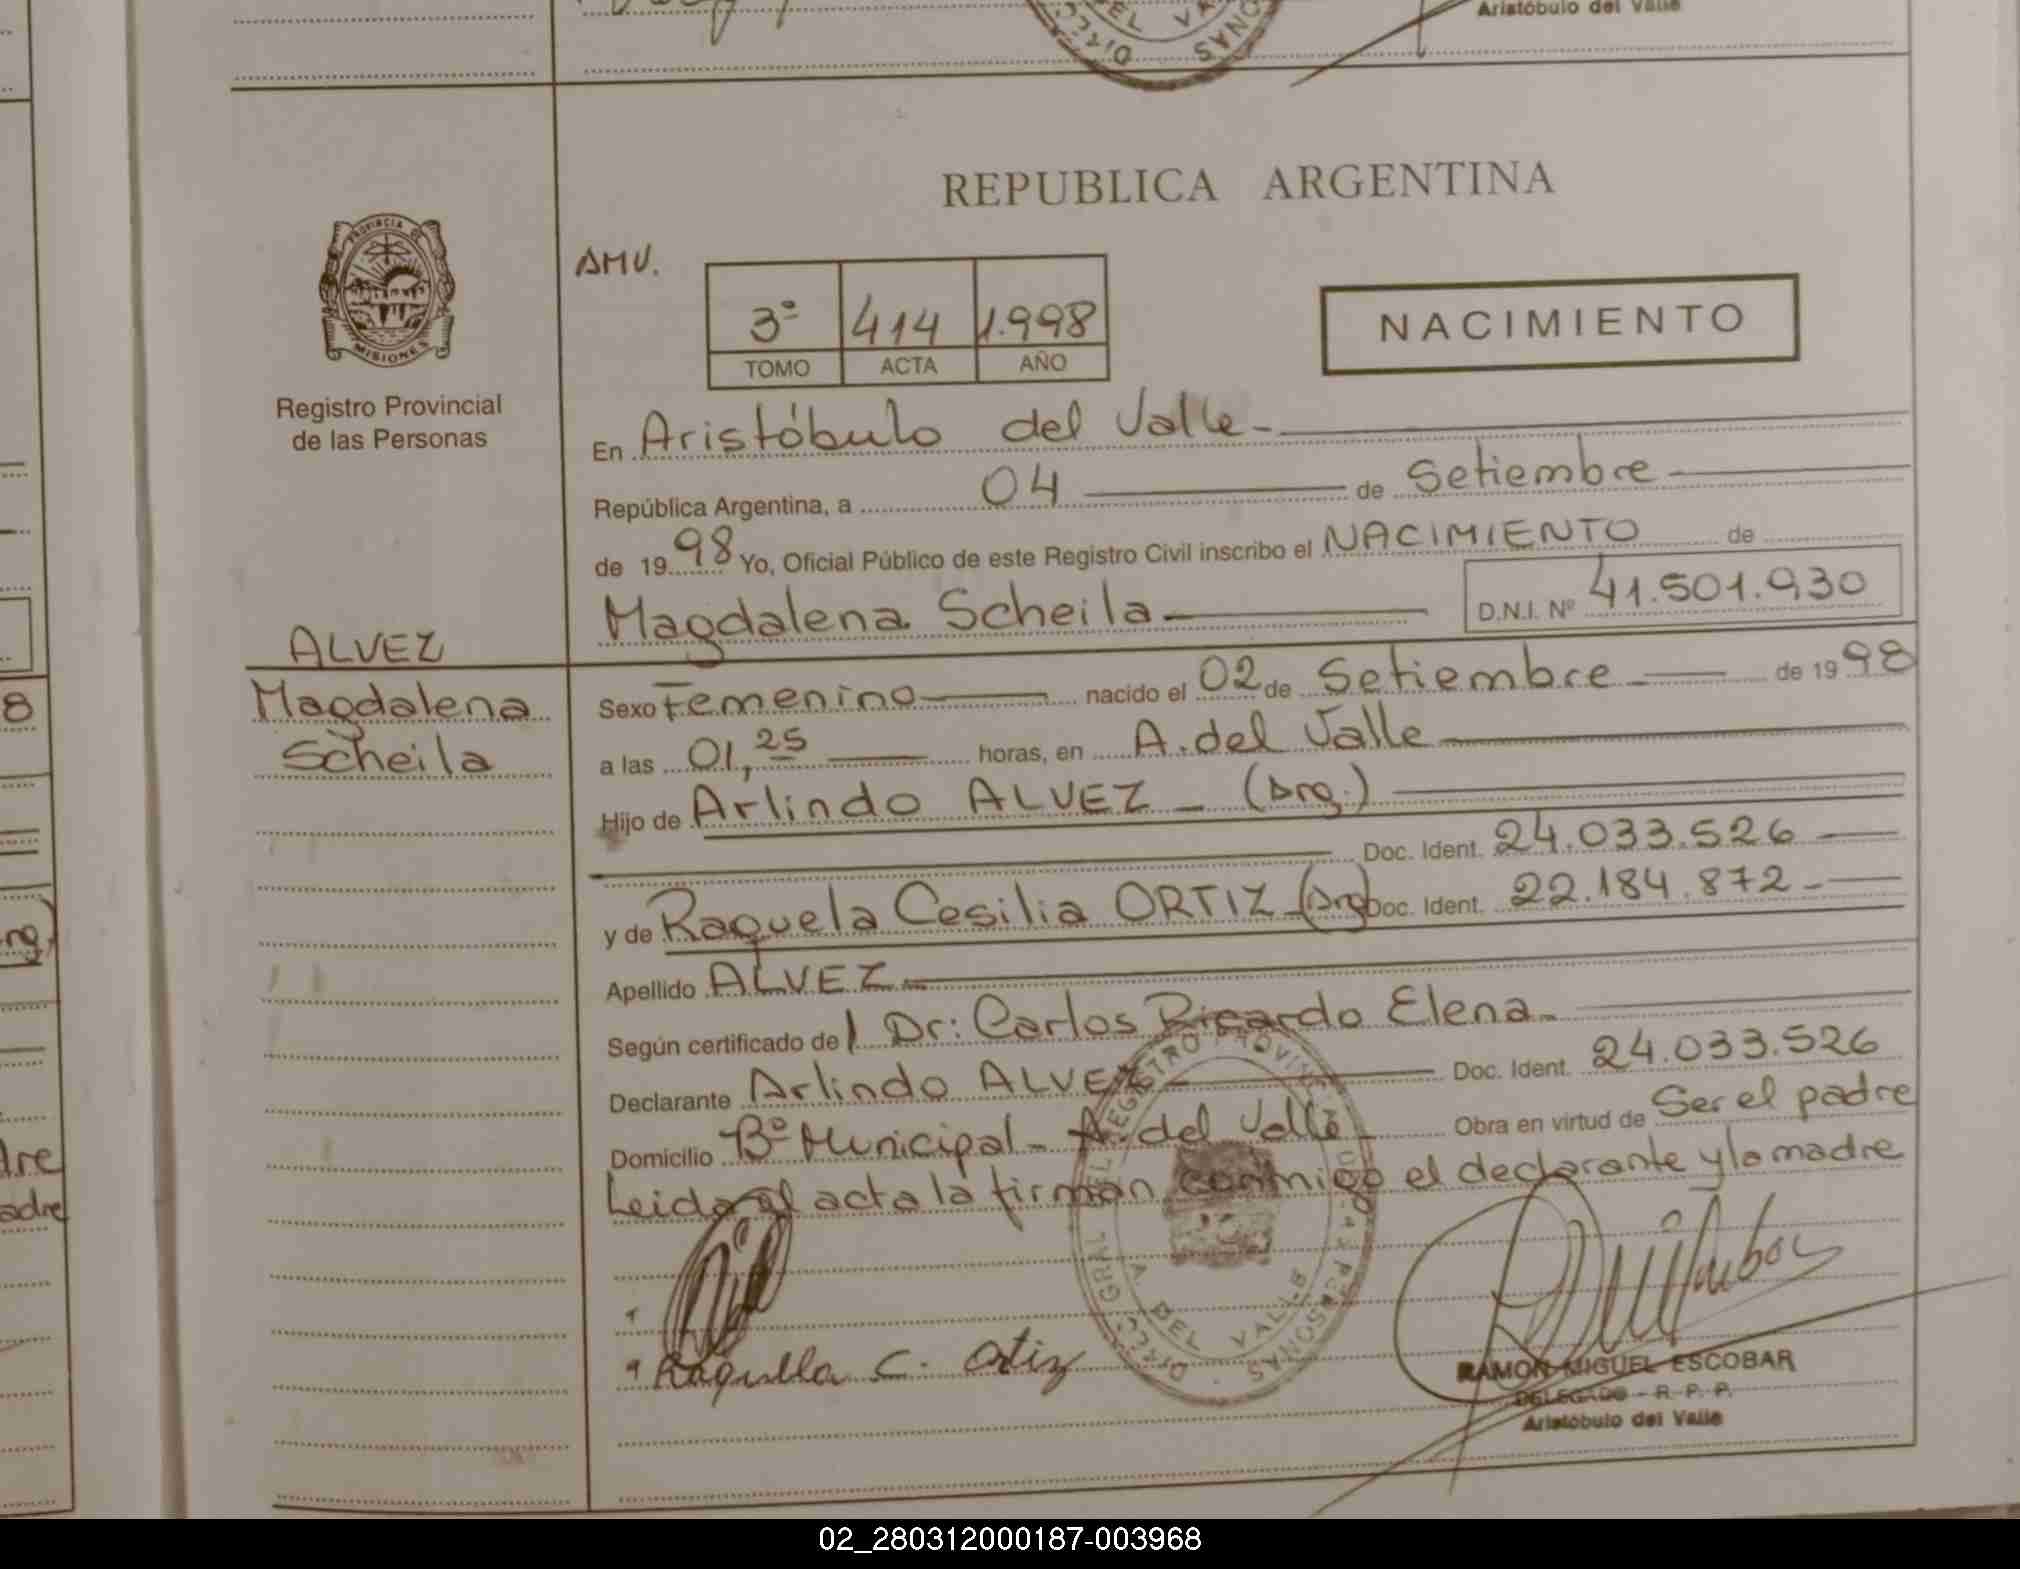 Aristóbulo del Valle
REPUBLICA ARGENTINA
PROVINCIA DE
MISIONES
Registro Provincial
de las Personas
AMV.
3º 414 1.998
TOMO ACTA AÑO
NACIMIENTO
En Aristóbulo del Valle-
República Argentina, a 04 de Setiembre
de 1998 Yo, Oficial Público de este Registro Civil inscribo el NACIMIENTO de
Magdalena Scheila D.N.I. Nº 41.501.930
ALVEZ
Magdalena
Scheila
Sexo Femenino nacido el 02 de Setiembre de 1998
a las 01,25 horas, en A. del Valle
Hijo de Arlindo ALVEZ - (Arg.)
Doc. Ident. 24.033.526
y de Raquela Cesilia ORTIZ - (Arg) Doc. Ident. 22.184.872 -
Apellido ALVEZ
Según certificado de l Dr: Carlos Ricardo Elena -
Declarante Arlindo ALVEZ Doc. Ident. 24.033.526
Domicilio Bº Municipal - A. del Valle Obra en virtud de Ser el padre
Leida el acta la firman conmigo el declarante y la madre
Raquella C. Ortiz
RAMON MIGUEL ESCOBAR
DELEGADO - R. P. P.
Aristóbulo del Valle
02_280312000187-003968